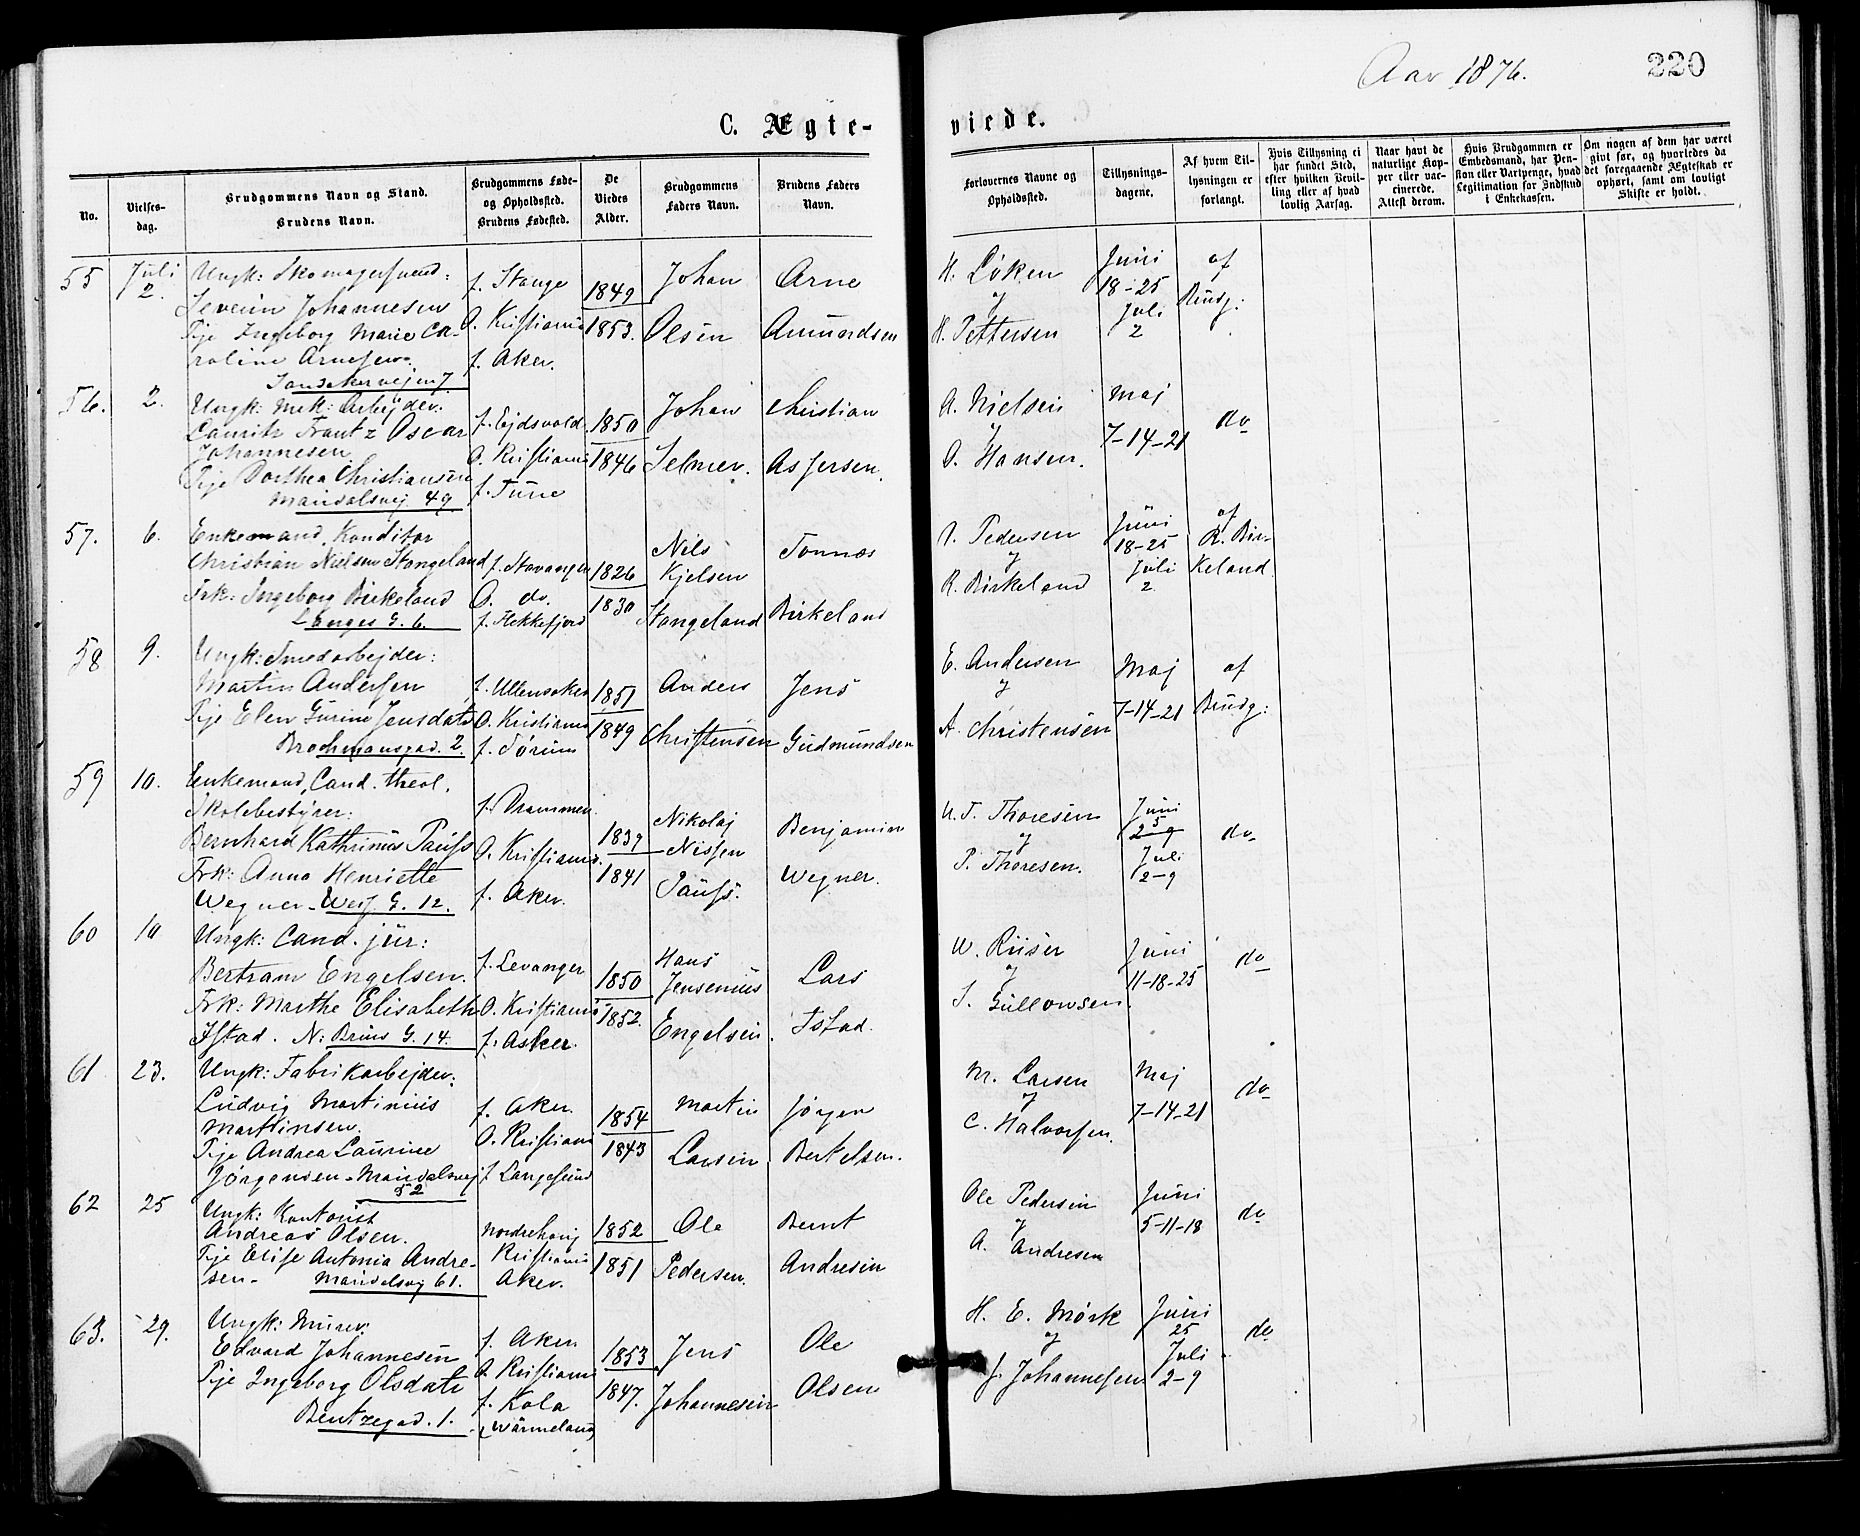 Aar 1876.
220
C. Ægte-
viede.
No.
Vielses-
dag.
Brudgommens Navn og Stand.
Brudens Navn.
Brudgommens Føde-
og Opholdssted.
Brudens Fødested.
De
Viedes
Alder.
Brudgommens
Faders Navn.
Brudens Faders
Navn.
Forlovernes Navne og
Opholdssted.
Tillysnings-
dagene.
Af hvem Til-
lysningen er
forlangt.
Hvis Tillysning ei
har fundet Sted,
efter hvilken Bevil-
ling eller af hvad
lovlig Aarsag.
Naar havt de
naturlige Kop-
per eller vac-
cinerede.
Attest derom.
Hvis Brudgommen er
Embedsmand, har Pen-
sion eller Vartpenge, hvad
Legitimation for Indskud
i Enkekassen.
Om nogen af dem har været
gift før, og hvorledes da
det foregaaende Ægteskab er
ophørt, samt om lovligt
Skifte er holdt.
55
Juli
2.
Ungk: Skomagersvend:
Severin Johannesen
Pige Ingeborg Marie Ca-
roline Arnesen.
Sandakervejen 7
f. Stange
O. Kristiania
f. Aker.
1849
1853.
Johan
Olsen
Arne
Amundsen
H. Løken
og
H. Pettersen
Juni
18-25
Juli
2
af
Brudg:
56.
2.
Ungk: Mek: Arbejder:
Lauritz Frantz Oscar
Johannesen
Pige Dorthea Christiansen
Maridalsvej 49
f. Ejdsvold.
O. Kristiania
f. Tune
1850
1846
Johan
Selmer.
Christian
Aslersen.
A. Nielsen
og
O. Hansen.
Maj
7-14-21
do
57.
6.
Enkemand, Konditor
Christian Nielsen Stangeland
Frk: Ingeborg Birkeland
Langes G. 6.
f. Stavanger
O. do.
f. Flekkefjord
1826
1830
Nils
Kjelsen
Stangeland
Tonnes
Birkeland
Pedersen
og
R. Birkeland
Juni
18-25
Juli
2.
af
R. Bir-
keland.
58
9.
Ungk: Smedarbejder:
Martin Andersen
Pige Elen Gurine Jensdatr
Brochmansgad. 2.
f. Ullensaker
O. Kristiania
f. Sørum
1851
1849
Anders
Christensen
Jens
Gudmundsen
E. Andersen
og
A. Christensen
Maj
7-14-21
af
Brudg:
59
10.
Enkemand, Cand. theol.
Skolebestyrer:
Bernhard Kathrinus Pauss
Frk: Anna Henriette
Wegner - Werg. G. 12.
f. Drammen.
O. Kristiania.
f. Aker.
1839
1841
Nikolaj
Nissen
Pauss.
Benjamin
Wegner.
N. T. Thoresen
og
P. Thoresen.
Juni
25
Juli
2-9
do
60
10
Ungk: Cand. jur:
Bertram Engelsen.
Frk: Marthe Elisabeth
Istad. N: Bruns G. 14.
f. Levanger
O. Kristiania
f. Asker.
1850
1852.
Hans
Jensenius
Engelsen.
Lars
Istad.
W. Riiser
og
S. Gullowsen.
Juni
11-18-25
do
61
23.
Ungk: Fabrikarbejder:
Ludvig Martinius
Martinsen.
Pige Andrea Laurine
Jørgensen - Maridalsvej
52
f. Aker.
O. Kristiania
f. Langesund
1854
1843
Martin
Larsen
Jørgen
Bertelsen.
M. Larsen
og
C. Halvorsen.
Maj
7-14-21
do
62
25
Ungk: Kontorist
Andreas Olsen.
Pige Elise Antonia Andre-
sen - Maridalsvej 61.
Norderhov
Kristiania
Aker.
1852
1851
Ole
Pedersen.
Bernt
Andresen
Ole Pedersen
og
A. Andresen
Juni
5-11-18
do
63.
29.
Ungk: Murer:
Edvard Johannesen
Pige Ingeborg Olsdatr
Bentzegad. 1.
f. Aker
O. Kristiania
f. Kola
(Wärmeland)
1853
1847.
Jens
Johannesen
Ole
Olsen
H. E. Mørk
og
J. Johannesen
Juni
25
Juli
2-9
do